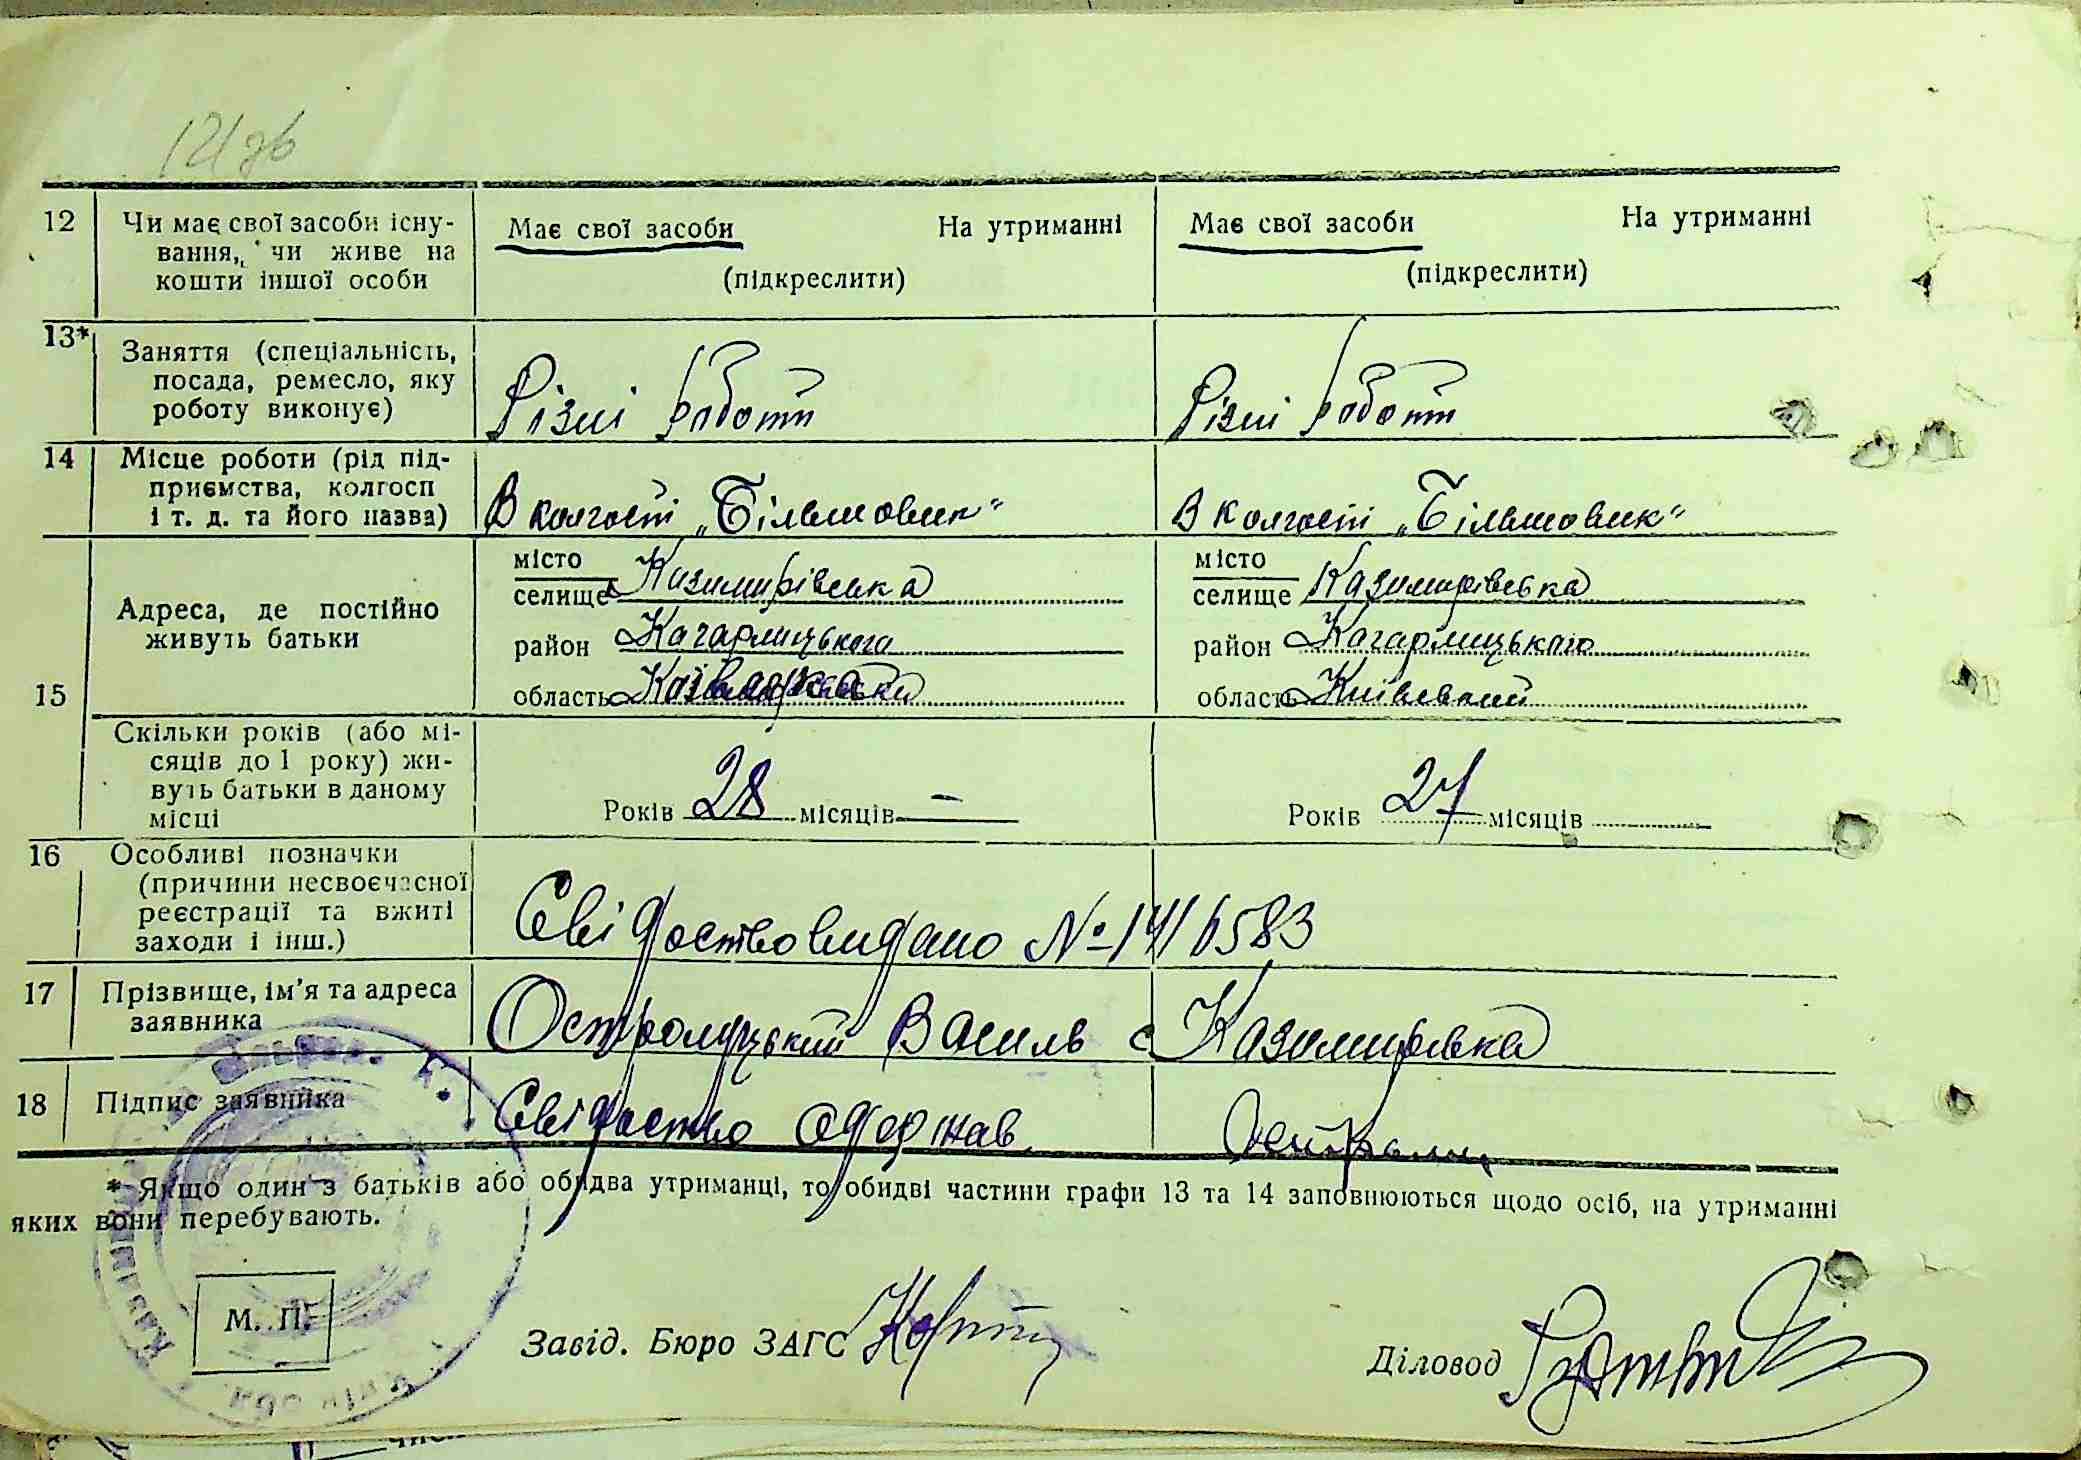 121 зв
12 Чи має свої засоби існу-
вання, чи живе на
кошти іншої особи
Має свої засоби На утриманні
(підкреслити)
Має свої засоби На утриманні
(підкреслити)
13* Заняття (спеціальність,
посада, ремесло, яку
роботу виконує)
Різні роботи
Різні роботи
14 Місце роботи (рід під-
приємства, колгосп
і т. д. та його назва)
В колгості „Більшовик"
В колгості „Більшовик"
15
Адреса, де постійно
живуть батьки
місто
селище Казимирівська
район Кагарлицького
область
місто
селище Казимирівська
район Кагарлицького
область Київський
Скільки років (або мі-
сяців до 1 року) жи-
вуть батьки в даному
місці
Років 28 місяців —
Років 27 місяців
16 Особливі позначки
(причини несвоєчасної
реєстрації та вжиті
заходи і інш.)
Свідоство видано № 1416583
17 Прізвище, ім'я та адреса
заявника
Остролуцький Василь с Казимировка
18 Підпис заявника
Свідоство одержав
* Якщо один з батьків або обидва утриманці, то обидві частини графи 13 та 14 заповнюються щодо осіб, на утриманні
яких вони перебувають.
М. П.
Завід. Бюро ЗАГС
Діловод